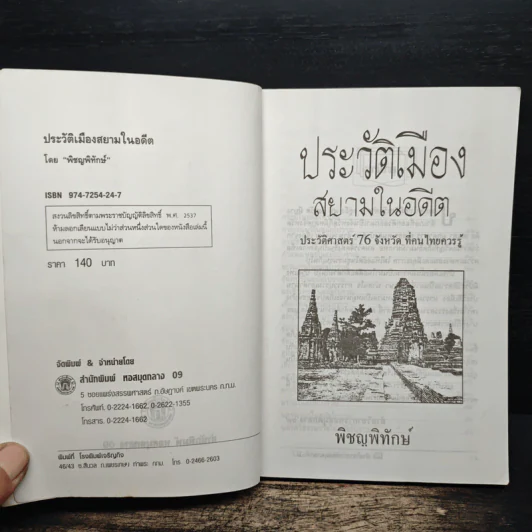 ประวัติเมืองสยามในอดีต
โดย "พิชญพิทักษ์"
ISBN 974-7254-24-7
สงวนลิขสิทธิ์ตามพระราชบัญญัติลิขสิทธิ์ พ.ศ. 2537
ห้ามลอกเลียนแบบไม่ว่าส่วนหนึ่งส่วนใดของหนังสือเล่มนี้
นอกจากจะได้รับอนุญาต
ราคา 140 บาท
จัดพิมพ์ & จำหน่ายโดย
สำนักพิมพ์ หอสมุดกลาง 09
5 ซอยแพร่งสรรพศาสตร์ ถ.อัษฎางค์ เขตพระนคร ก.ท.ม.
โทรศัพท์. 0-2224-1662, 0-2622-1355
โทรสาร. 0-2224-1662
พิมพ์ที่ โรงพิมพ์เจริญกิจ
46/43 โทร. 0-2466-2603
ประวัติเมือง
สยามในอดีต
ประวัติศาสตร์ 76 จังหวัด ที่คนไทยควรรู้
พิชญพิทักษ์